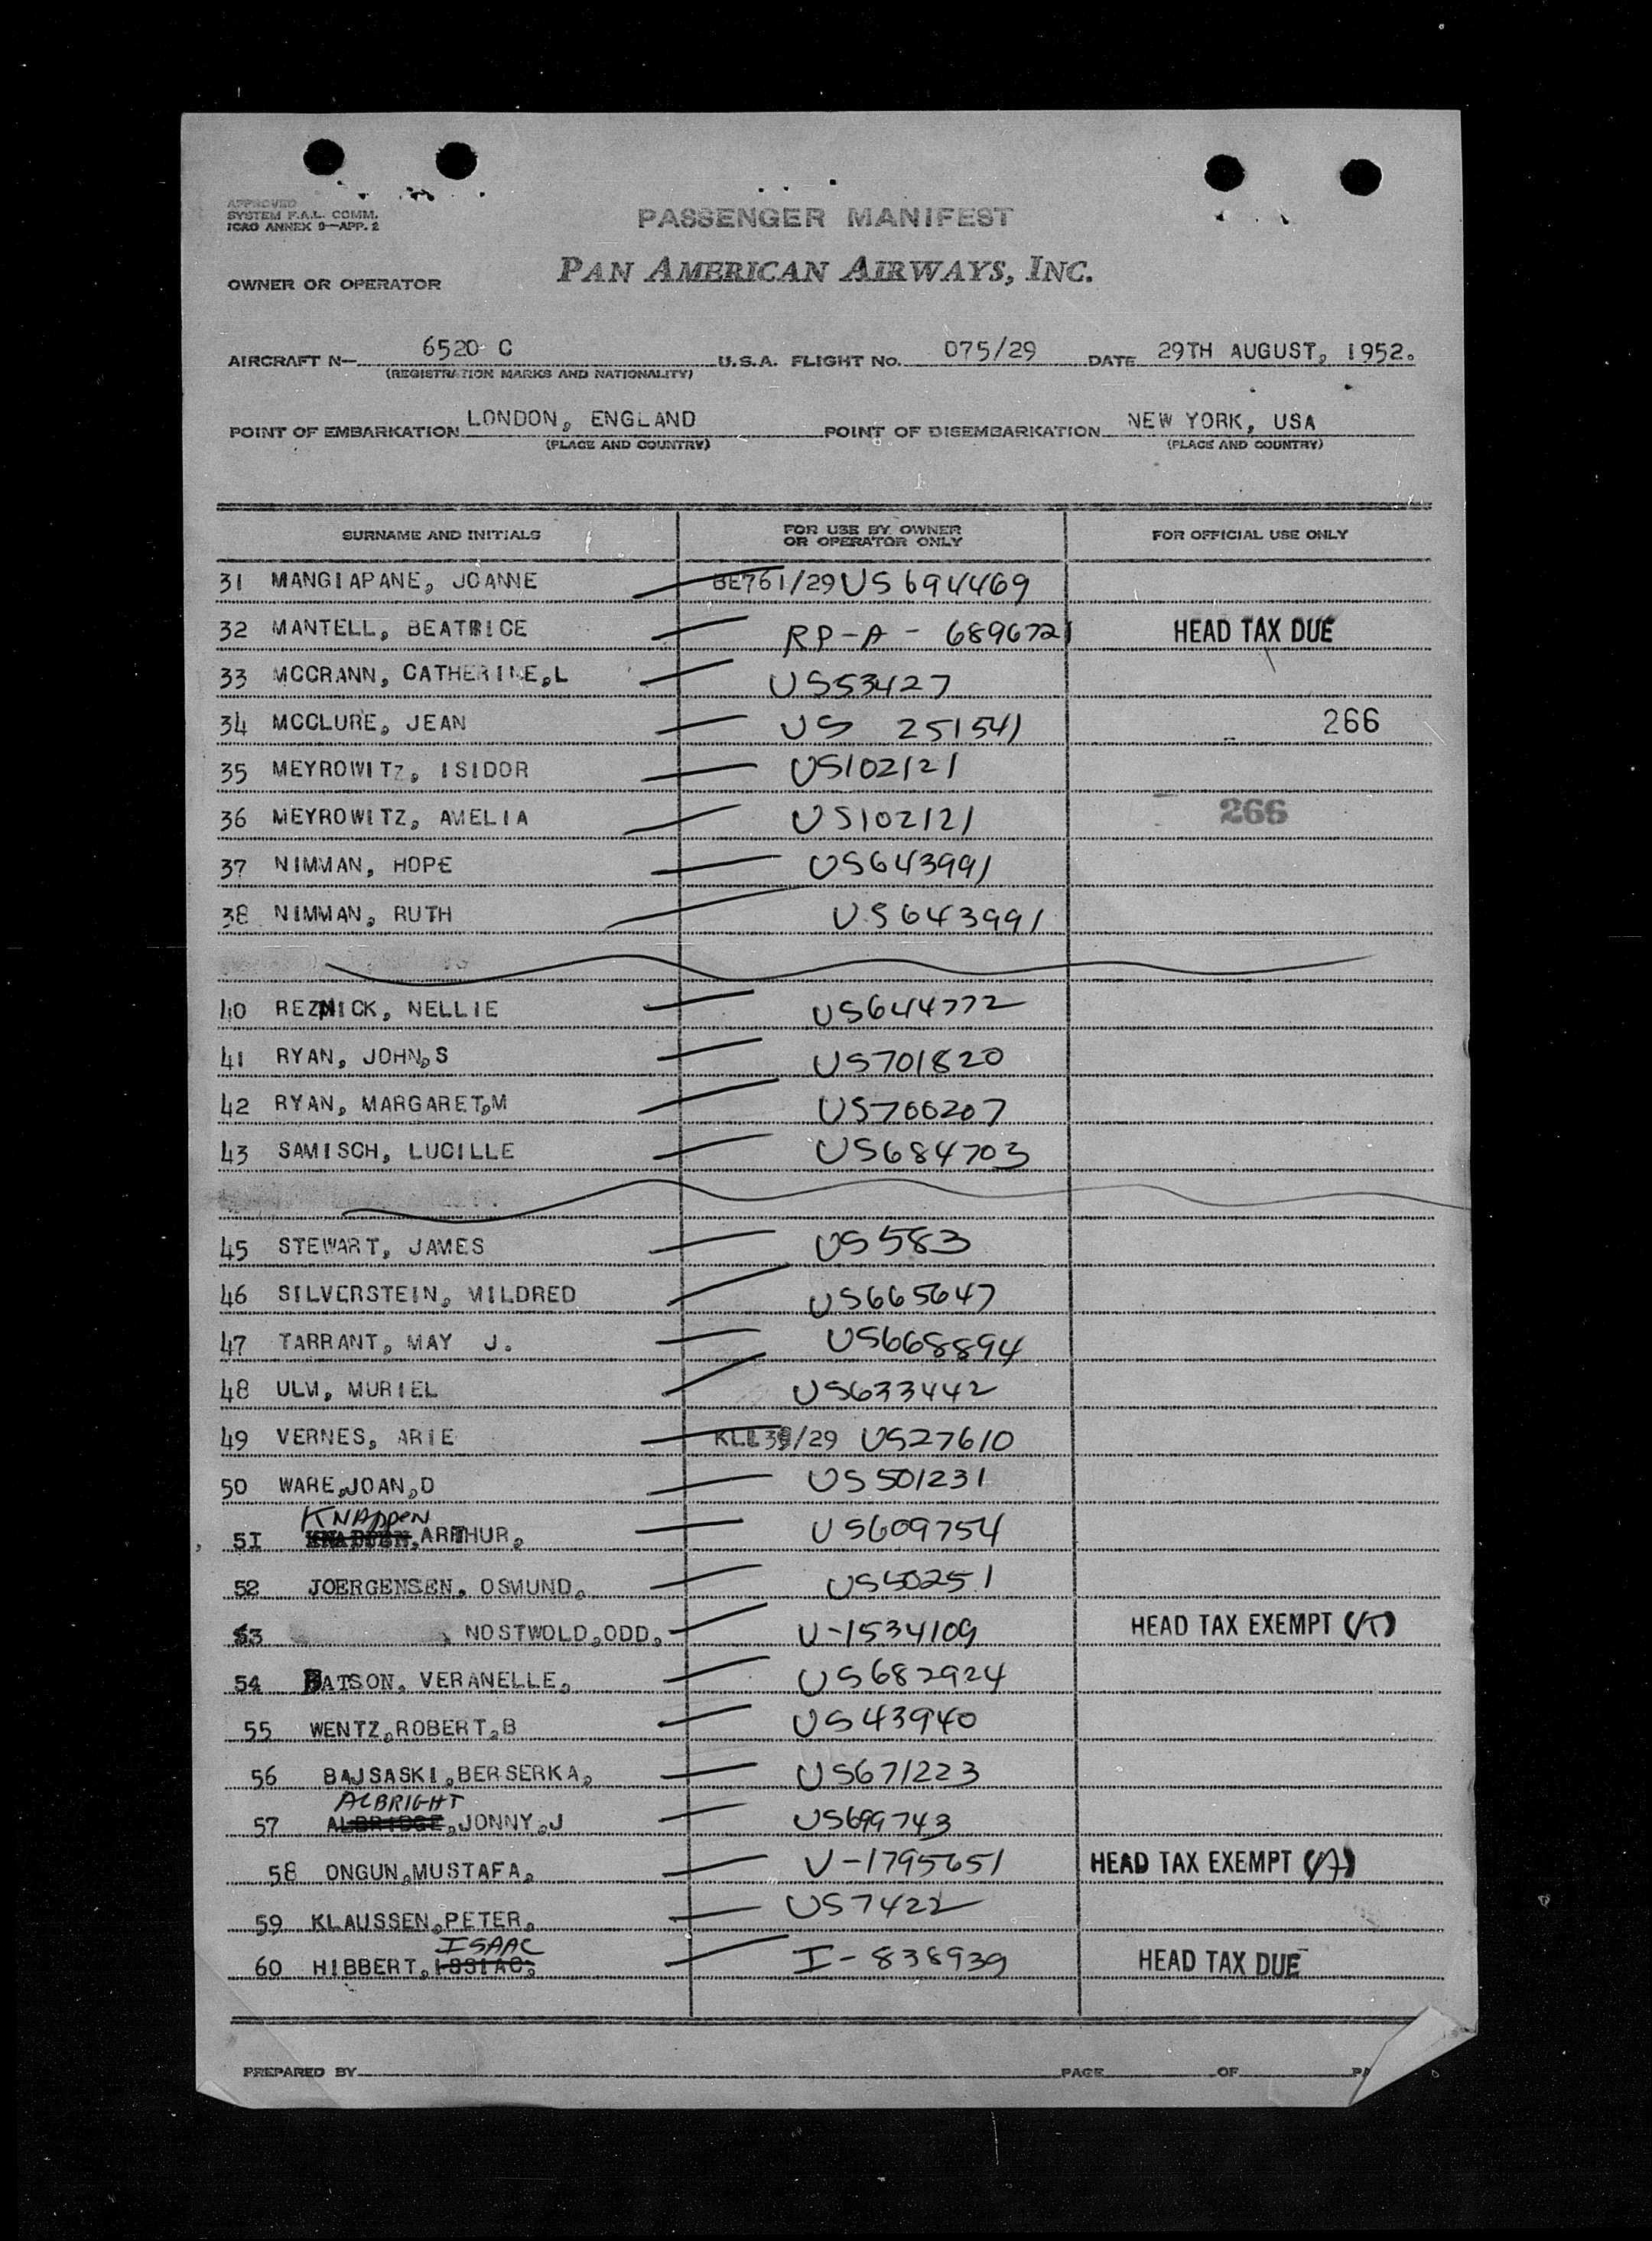 APPROVED
SYSTEM F.A.L. COMM.
ICAO ANNEX 9—APP. 2
PASSENGER MANIFEST
OWNER OR OPERATOR PAN AMERICAN AIRWAYS, INC.
AIRCRAFT N— 6520 C U.S.A. FLIGHT NO. 075/29 DATE 29TH AUGUST, 1952.
(REGISTRATION MARKS AND NATIONALITY)
POINT OF EMBARKATION LONDON, ENGLAND POINT OF DISEMBARKATION NEW YORK, USA
(PLACE AND COUNTRY) (PLACE AND COUNTRY)
SURNAME AND INITIALS FOR USE BY OWNER OR OPERATOR ONLY FOR OFFICIAL USE ONLY
31 MANGIAPANE, JOANNE BE761/29 US694469
32 MANTELL, BEATRICE RP-A-6896721 HEAD TAX DUE
33 MCCRANN, CATHERINE,L US53427
34 MCCLURE, JEAN US 251541 266
35 MEYROWITZ, ISIDOR US102121
36 MEYROWITZ, AMELIA US102121 266
37 NIMMAN, HOPE US643991
38 NIMMAN, RUTH US643991
40 REZNICK, NELLIE US644772
41 RYAN, JOHN,S US701820
42 RYAN, MARGARET,M US700207
43 SAMISCH, LUCILLE US684703
45 STEWART, JAMES US583
46 SILVERSTEIN, MILDRED US665647
47 TARRANT, MAY J. US668894
48 ULM, MURIEL US633442
49 VERNES, ARIE /29 US27610
50 WARE,JOAN,D US501231
KNAPPEN
51 ARTHUR, US609754
52 JOERGENSEN, OSMUND, US50251
53 , NOSTWOLD,ODD, V-1534109 HEAD TAX EXEMPT
54 BATSON, VERANELLE, US682924
55 WENTZ,ROBERT,B US43940
56 BAJSASKI,BERSERKA, US671223
ALBRIGHT
57 ALBRIDGE,JONNY,J US699743
58 ONGUN,MUSTAFA, V-1795651 HEAD TAX EXEMPT
59 KLAUSSEN,PETER, US7422
ISAAC
60 HIBBERT,ISSIAC, I-838939 HEAD TAX DUE
PREPARED BY PAGE OF